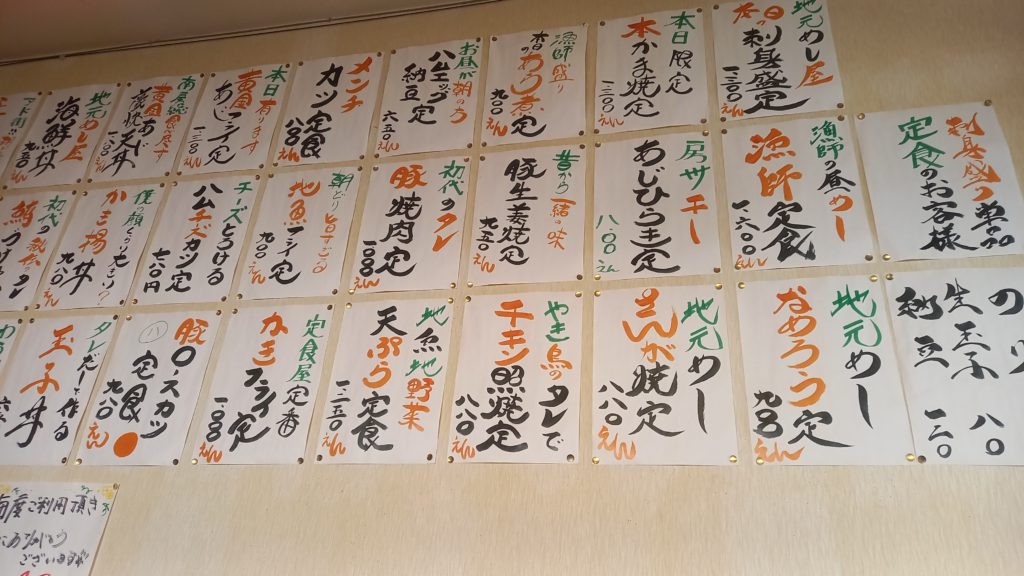 地元めし屋
本日の
刺身盛定
一三〇〇えん
本日限定
本かま焼定
一三〇〇えん
漁師盛り
本日の
あら煮定
九〇〇えん
お昼が朝のう
ハムエッグ定
納豆
六五〇えん
メンチ
カツ定食
八〇〇えん
本日有ります
黄金
あじフライ定
えん
天丼
地元めし屋
海鮮丼
刺身盛り単品
定食のお客様
漁師の昼めし
漁師
定食
一、六〇〇えん
房州サキー
あじひらき定
八〇〇えん
昔から一緒の味
豚生姜焼定
九五〇えん
初代のタレ
豚焼肉定
一〇〇〇えん
朝どり旨すぎる
地魚フライ定
九〇〇えん
チーズとろける
ハムチーズカツ定
七〇〇円
かき揚丼
九八〇えん
初代の
のり
生玉子 八〇
納豆 一二〇
地元めし
なめろう定
九〇〇えん
地元めし
さんが焼定
八八〇えん
やき鳥のタレで
チキン照焼定
八八〇えん
地魚地野菜
天ぷら定食
一、二五〇えん
定食屋定番
かきフライ定
一〇〇〇えん
豚ロースカツ
定食
九八〇えん
タレだしで作る
玉子丼
毎度ご利用頂き
ありがとう
ございます